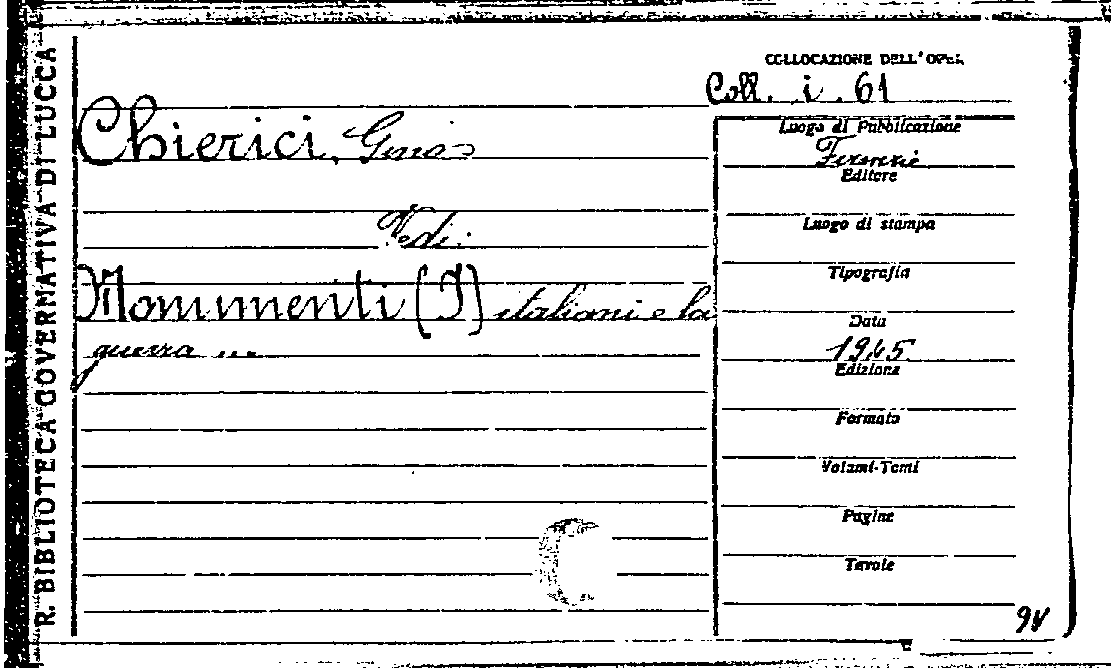 R. BIBLIOTECA GOVERNATIVA DI LUCCA
COLLOCAZIONE DELL'OPERA
Coll. i. 61
Chierici, Gino
Vedi:
Monumenti (I) italiani e la
guerra ...
Luogo di Pubblicazione
Firenze
Editore
Luogo di stampa
Tipografia
Data
1945
Edizione
Formato
Volumi-Tomi
Pagine
Tavole